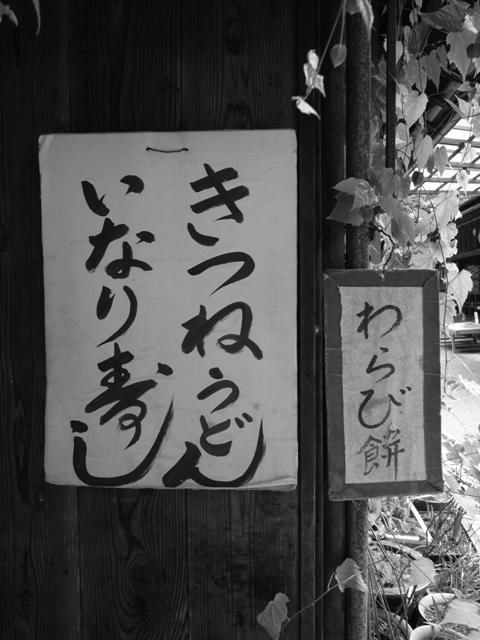 きつねうどん
いなり寿し
わらび餅